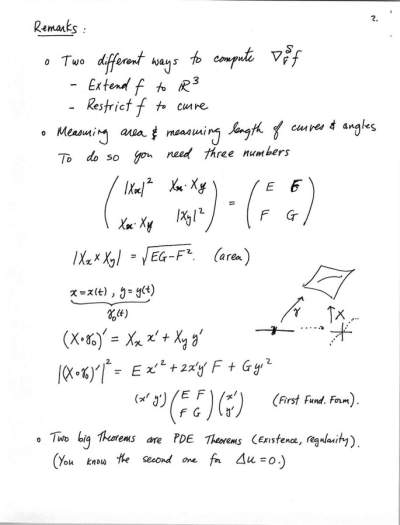 2.
Remarks:
o Two different ways to compute ∇^S_v⃗ f
- Extend f to ℝ³
- Restrict f to curve
o Measuring area & measuring length of curves & angles
To do so you need three numbers
( |Xx|² Xx·Xy ) = ( E F )
( Xx·Xy |Xy|² ) ( F G )
|Xx × Xy| = √EG-F². (area)
x=x(t), y=y(t)
γ₀(t)
(X∘γ₀)' = Xx x' + Xy y'
γ X
|(X∘γ₀)'|² = E x'² + 2x'y' F + G y'²
(x' y') ( E F ) ( x' ) (First Fund. Form).
( F G ) ( y' )
o Two big Theorems are PDE Theorems (Existence, regularity).
(You know the second one for Δu=0.)